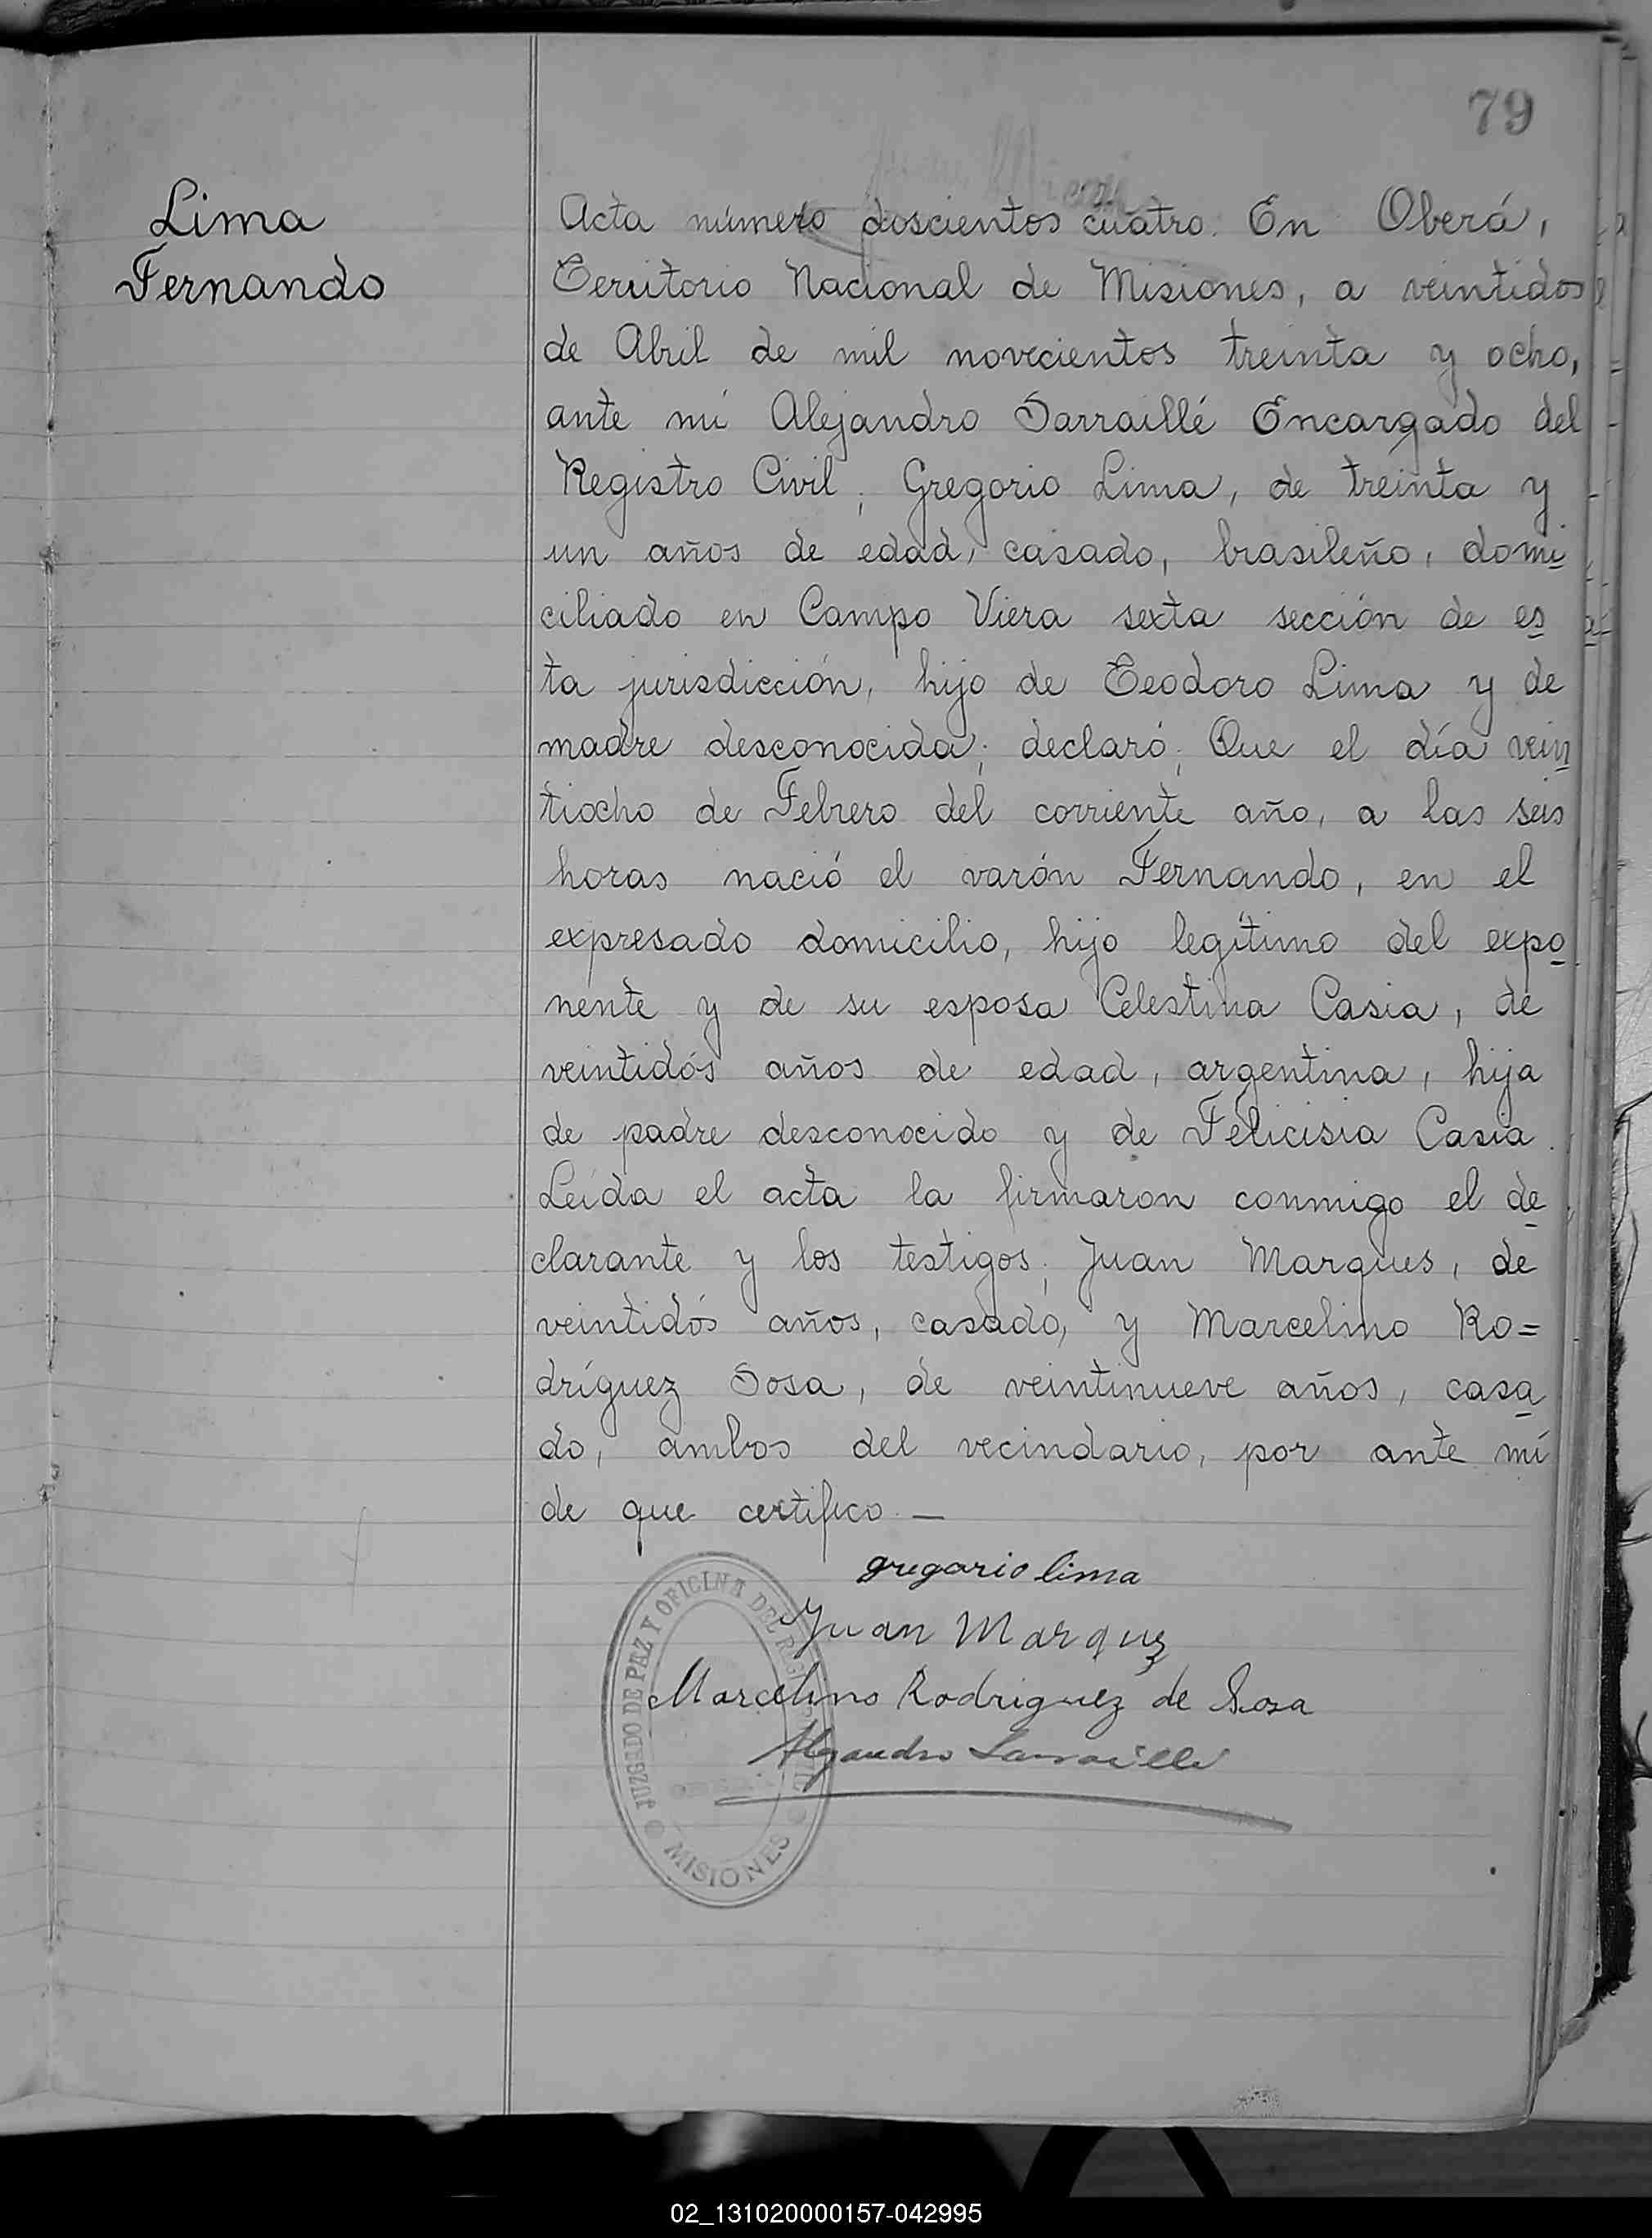 79
Lima
Fernando
Acta número doscientos cuatro. En Oberá,
Territorio Nacional de Misiones, a veintidos
de Abril de mil novecientos treinta y ocho,
ante mí Alejandro Sarraillé Encargado del
Registro Civil; Gregorio Lima, de treinta y
un años de edad, casado, brasileño, domi
ciliado en Campo Viera sexta sección de es
ta jurisdicción, hijo de Teodoro Lima y de
madre desconocida; declaró; Que el día vein
tiocho de Febrero del corriente año, a las seis
horas nació el varón Fernando, en el
expresado domicilio, hijo legítimo del expo
nente y de su esposa Celestina Casia, de
veintidós años de edad, argentina, hija
de padre desconocido y de Felicisia Casia.
Leída el acta la firmaron conmigo el de
clarante y los testigos; Juan Marques, de
veintidós años, casado, y Marcelino Ro=
dríguez Sosa, de veintinueve años, casa
do, ambos del vecindario, por ante mí
de que certifico. —
gregorio lima
Juan Marquz
Marcelino Rodriguez de Sosa
Alejandro Sarraillé
JUZGADO DE PAZ Y OFICINA DEL REGISTRO CIVIL
MISIONES
02_131020000157-042995